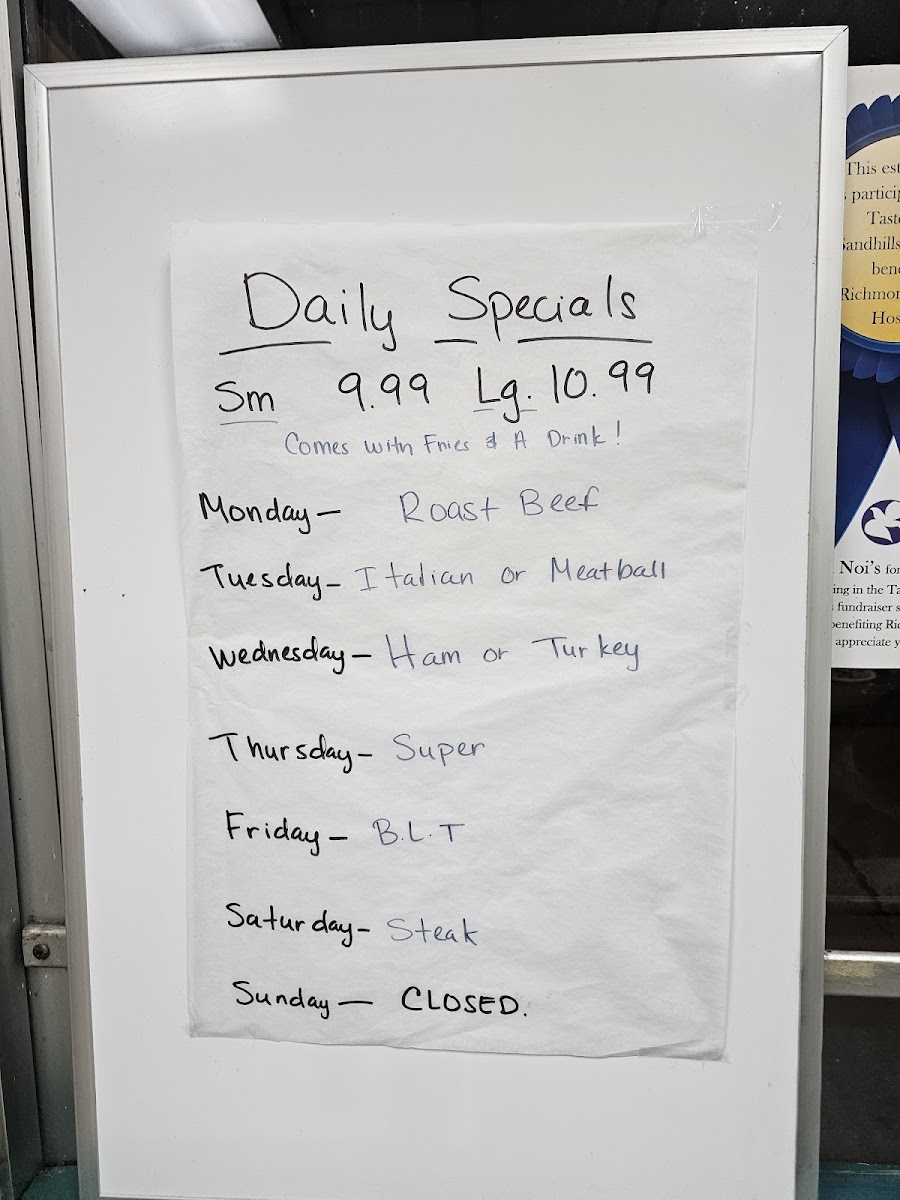 Daily Specials
Sm 9.99 Lg. 10.99
Comes with Fries & A Drink!
Monday- Roast Beef
Tuesday- Italian or Meatball
Wednesday- Ham or Turkey
Thursday- Super
Friday- B.L.T
Saturday- Steak
Sunday- CLOSED.
This est
particip
Tast
Sandhills
bene
Richmon
Hos
Noi's for
ing in the Ta
fundraiser s
benefiting Ri
appreciate y